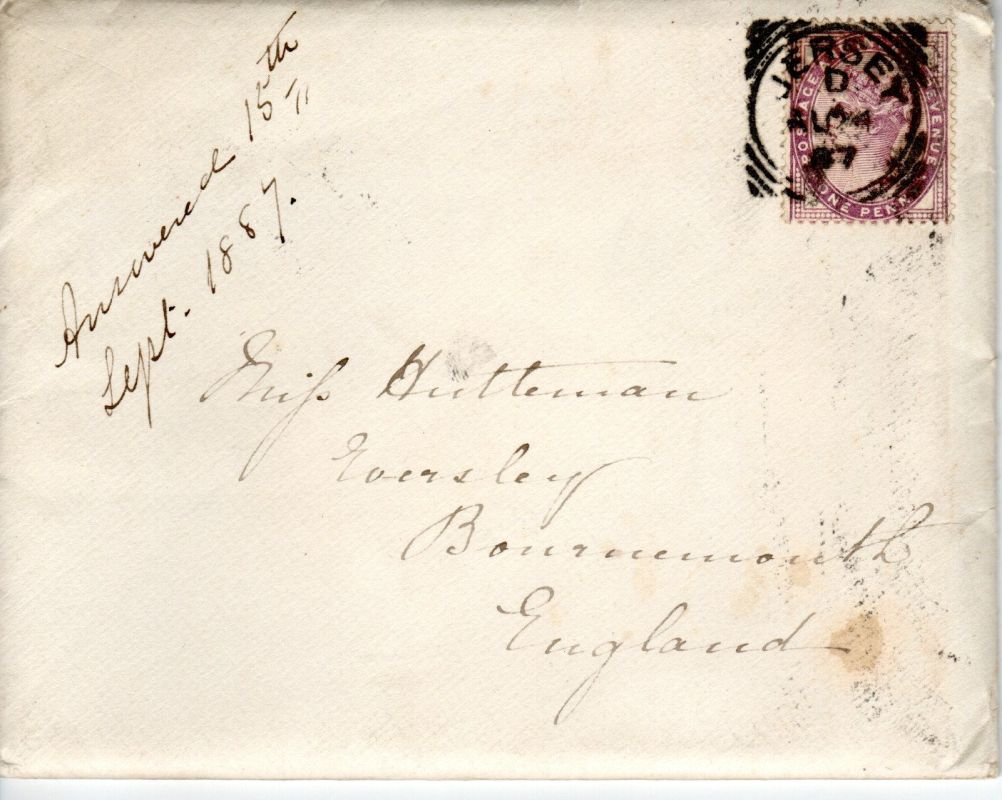 Answered 15th
Sept. 1887.
JERSEY
D
87
POSTAGE
REVENUE
ONE PENNY
Miss Hutteman
Eversley
Bournemouth
England